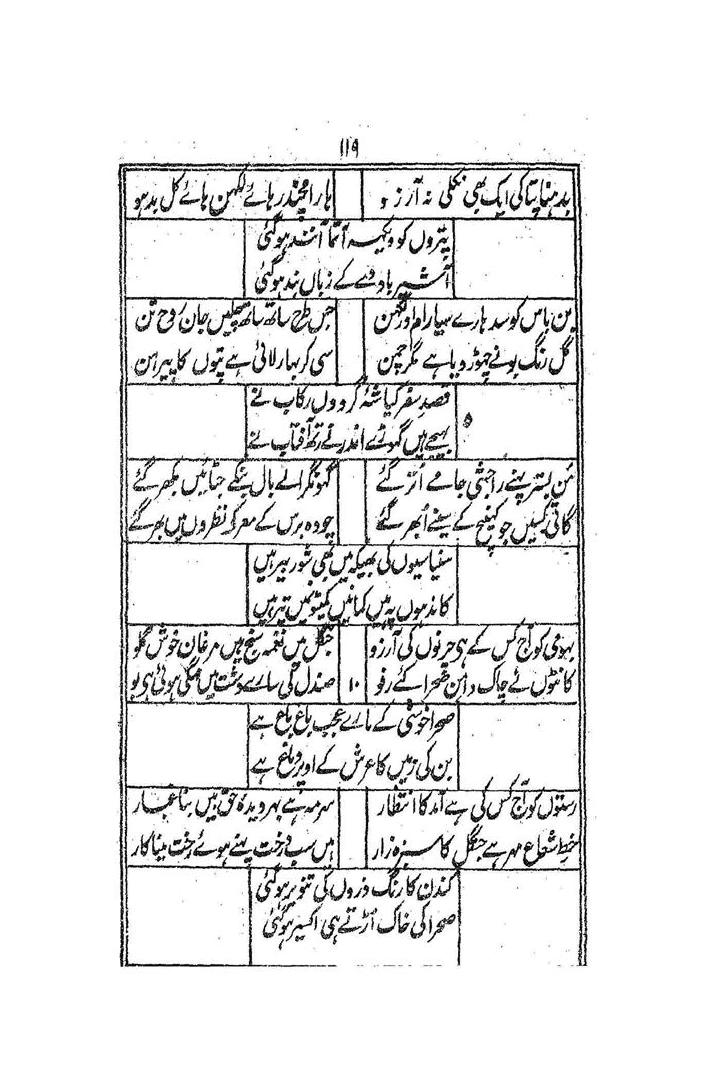 ۱۱۹
بدہنا پتا کی ایک بھی نکلی نہ آرزو
ہا رامچندر ہائے لکھن ہائے کل بدہو
پتروں کو دیکھ آتما آنند ہوگئی
آشیرباد دے کے زباں بند ہوگئی
بن باس کو سدہارے سیارام اور لکھن
جس طرح ساتھ ساتھ چلیں جان روح تن
گل رنگ بو نے چھوڑ دیا ہے مگر چمن
سی کر بہار لائی ہے پتوں کا پیرہن
قصد سفر کیا شہ گردوں رکاب نے
بہیجے ہیں گھوڑے اندر نے رتھ آفتاب نے
من بستر پہنے راجشی جامے اتر گئے
گھونگرالے بال بنکے جٹائیں بکھر گئے
گاتی کسیں جو کھینچ کے سینے اُبھر گئے
چودہ برس کے معرکہ نظروں میں بھر گئے
سنیاسیوں کی بھیکھ میں بھی شور بیر ہیں
کاندہوں پہ ہیں کمانیں کمیٹو نمیں تیر ہیں
بہومی کو آج کس کے ہی چرنوں کی آرزو
جنگل میں نغمہ سنج ہیں مرغان خوش گلو
کانٹوں نے چاک دامن صحرا کئے رفو
۱۰
صندل کی سارے دشت میں مہکی ہوئی ہی بو
صحرا خوشی کے مارے عجب باغ باغ ہے
بن کی زمیں کا عرش کے اوپر دماغ ہے
رستوں کو آج کس کی ہے آمد کا انتظار
سرمہ ہے بہر دیدۂ حق بیں بنا غبار
خط شعاع مہر ہے جنگل کا سبزہ زار
ہیں سب درخت پہنے ہوئے رخت میناکار
کندن کا رنگ ذروں کی تنویر ہوگئی
صحرا کی خاک اُڑتے ہی اکسیر ہوگئی